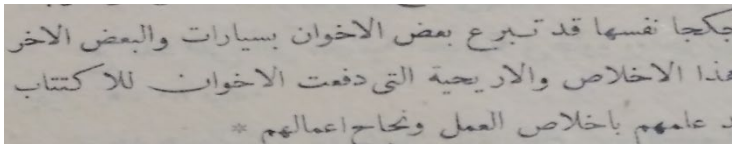 جكجا نفسها قد تبرع بعض الاخوان بسيارات والبعض الاخر
هذا الاخلاص والاريحية التى دفعت الاخوان للاكتتاب
علمهم باخلاص العمل ونجاح اعمالهم *